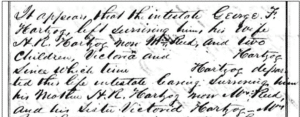 It appears that the intestate George F.
Hartzog left surviving him, his wife
A. R. Hartzog now Mrs. Reid, and two
Children, Victoria and Hartzog
Since which time Hartzog depar-
ted this life intestate leaving surviving him
his Mother A. R. Hartzog now Mrs. Reid
and his Sister Victoria Hartzog - Mrs.